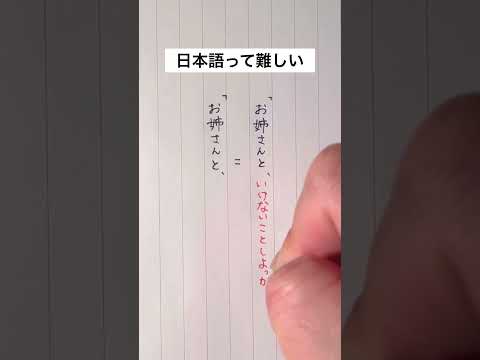 日本語って難しい
「お姉さんと、いけないことしよっか
=
「お姉さんと、